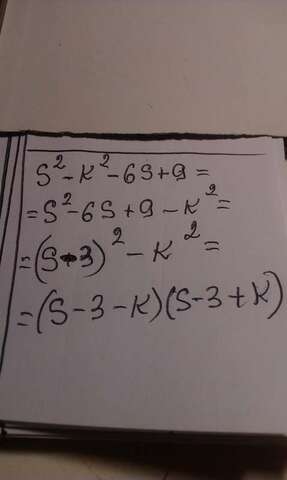 S² - K² - 6S + 9 =
= S² - 6S + 9 - K² =
= (S - 3)² - K² =
= (S - 3 - K)(S - 3 + K)